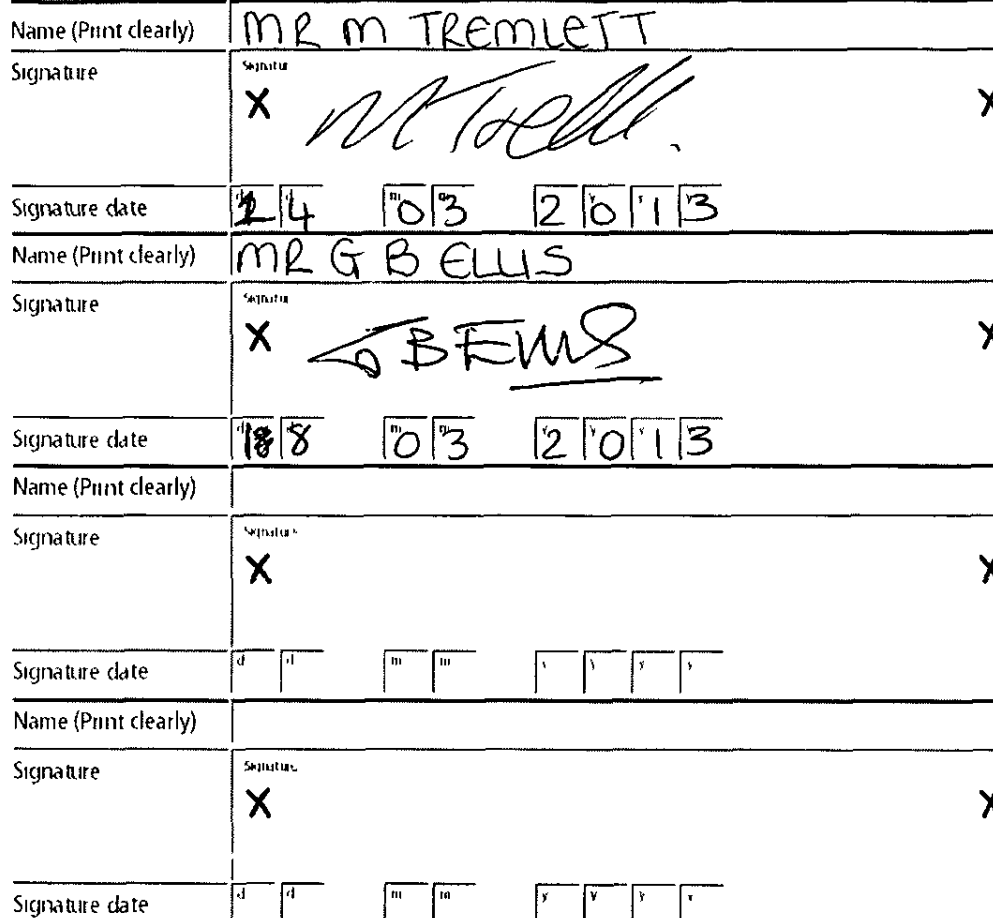 Name (Print clearly) MR M TREMLETT
Signature Signatur
X M Trelle. X
Signature date 4 m 0 3 2 0 1 3
Name (Print clearly) MR G B ELLIS
Signature Signatur
X G B Ellis X
Signature date 8 m 0 3 2 0 1 3
Name (Print clearly)
Signature Signature
X X
Signature date d d m m y y y y
Name (Print clearly)
Signature Signature
X X
Signature date d d m m y y y y